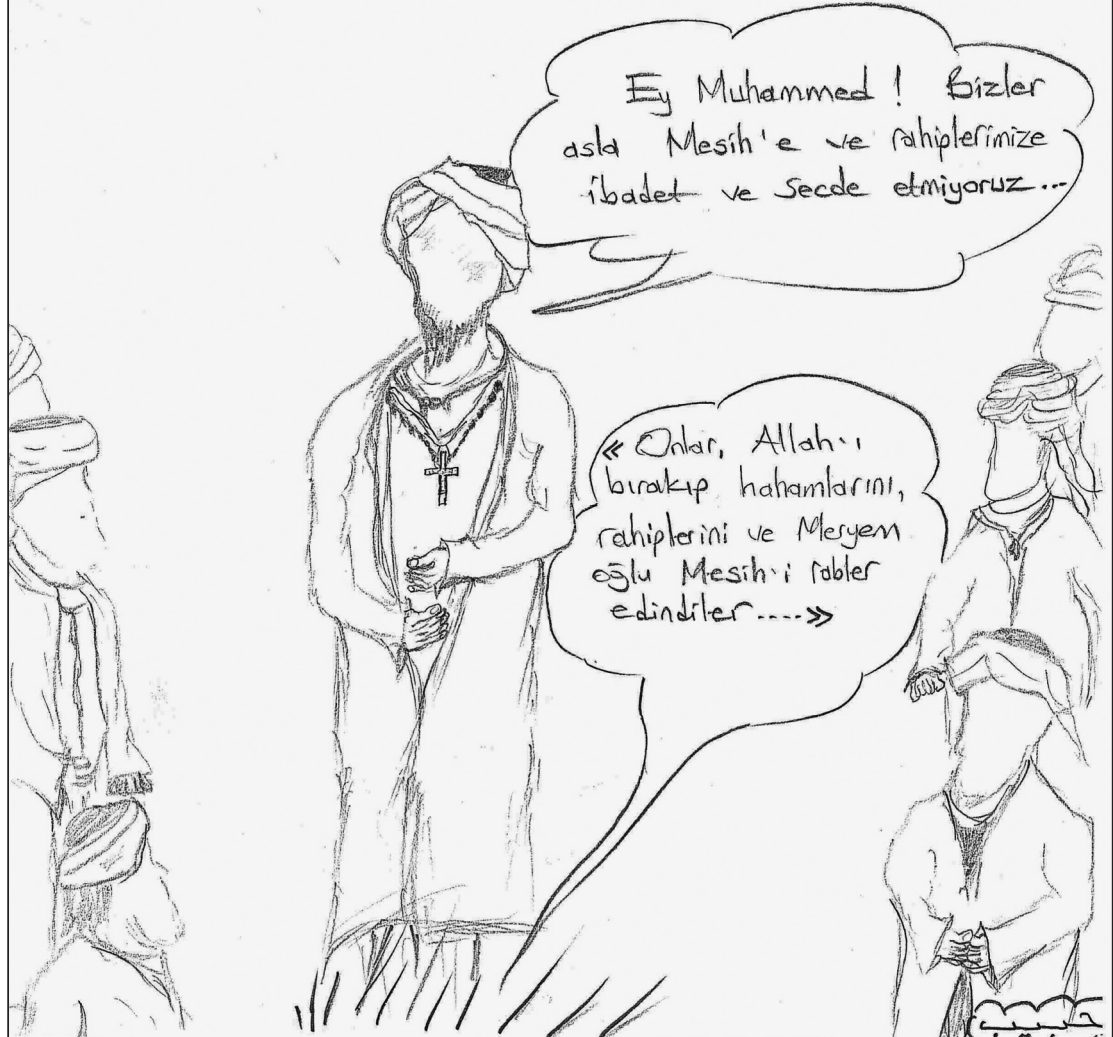 Ey Muhammed ! Bizler
asla Mesih'e ve rahiplerimize
ibadet ve secde etmiyoruz...
« Onlar, Allah'ı
bırakıp hahamlarını,
rahiplerini ve Meryem
oğlu Mesih'i rabler
edindiler....»